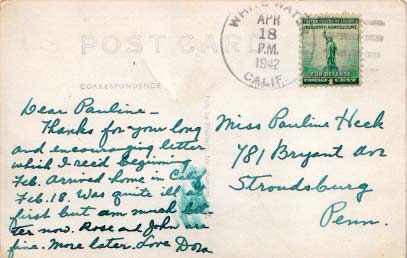 POST CARD
CORRESPONDENCE
Dear Pauline –
Thanks for your long
and encouraging letter
which I rec'd beginning
Feb. Arrived home in
Feb. 18. Was quite ill
first but am much bet-
ter now. Rose and John are
fine. More later. Love Dora
WHITE
APR
18
P.M.
1942
CALIF.
UNITED STATES OF AMERICA
INDUSTRY AGRICULTURE
FOR DEFENSE
POSTAGE 1 CENT
Miss Pauline Heck
781 Bryant Ave
Stroudsburg
Penn.